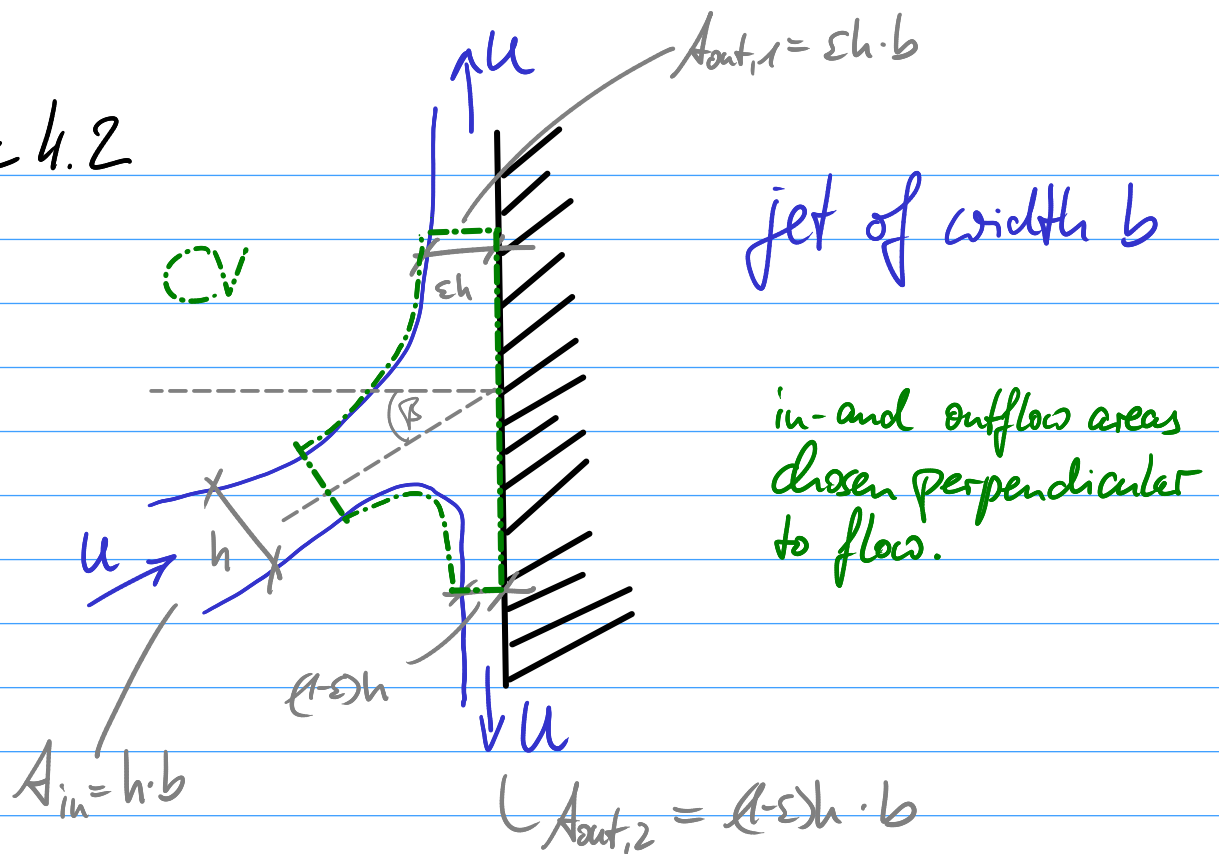 U
A_out,1 = εh·b
= 4.2
jet of width b
CV
εh
β
in- and outflow areas
chosen perpendicular
to flow.
U
h
(1-ε)h
U
A_in = h·b
A_out,2 = (1-ε)h · b